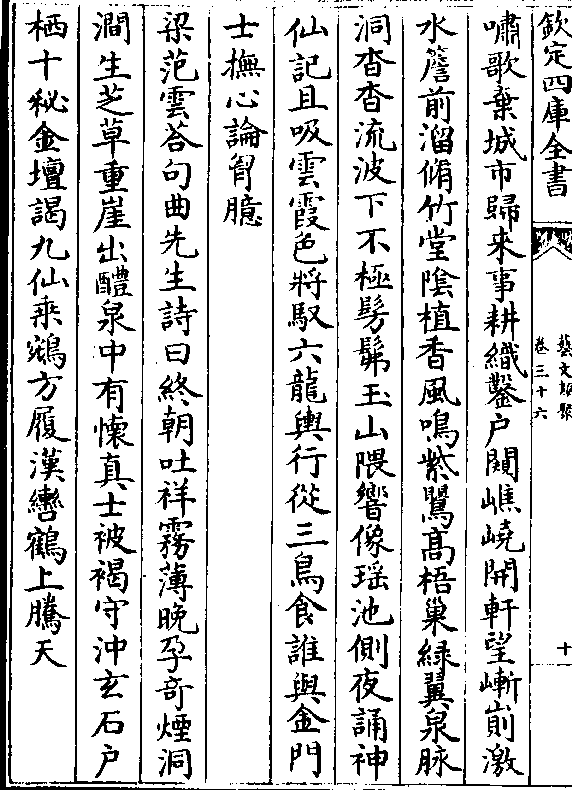 欽定四庫全書
藝文類聚
卷三十六
十
嘯歌棄城市歸來事耕織鑿户闚嶕嶢開軒望嶄崱激
水簷前溜脩竹堂隂植香風鳴紫鸎髙梧巢緑翼泉脉
洞杳杳流波下不極髣髴玉山隈響像瑶池側夜誦神
仙記且吸雲霞色將馭六龍輿行從三鳥食誰與金門
士撫心論胷臆
梁范雲荅句曲先生詩曰終朝吐祥霧薄晚孕竒煙洞
澗生芝草重崖出醴泉中有懷真士被褐守沖玄石户
栖十秘金壇謁九仙乘鵷方履漢轡鶴上騰天